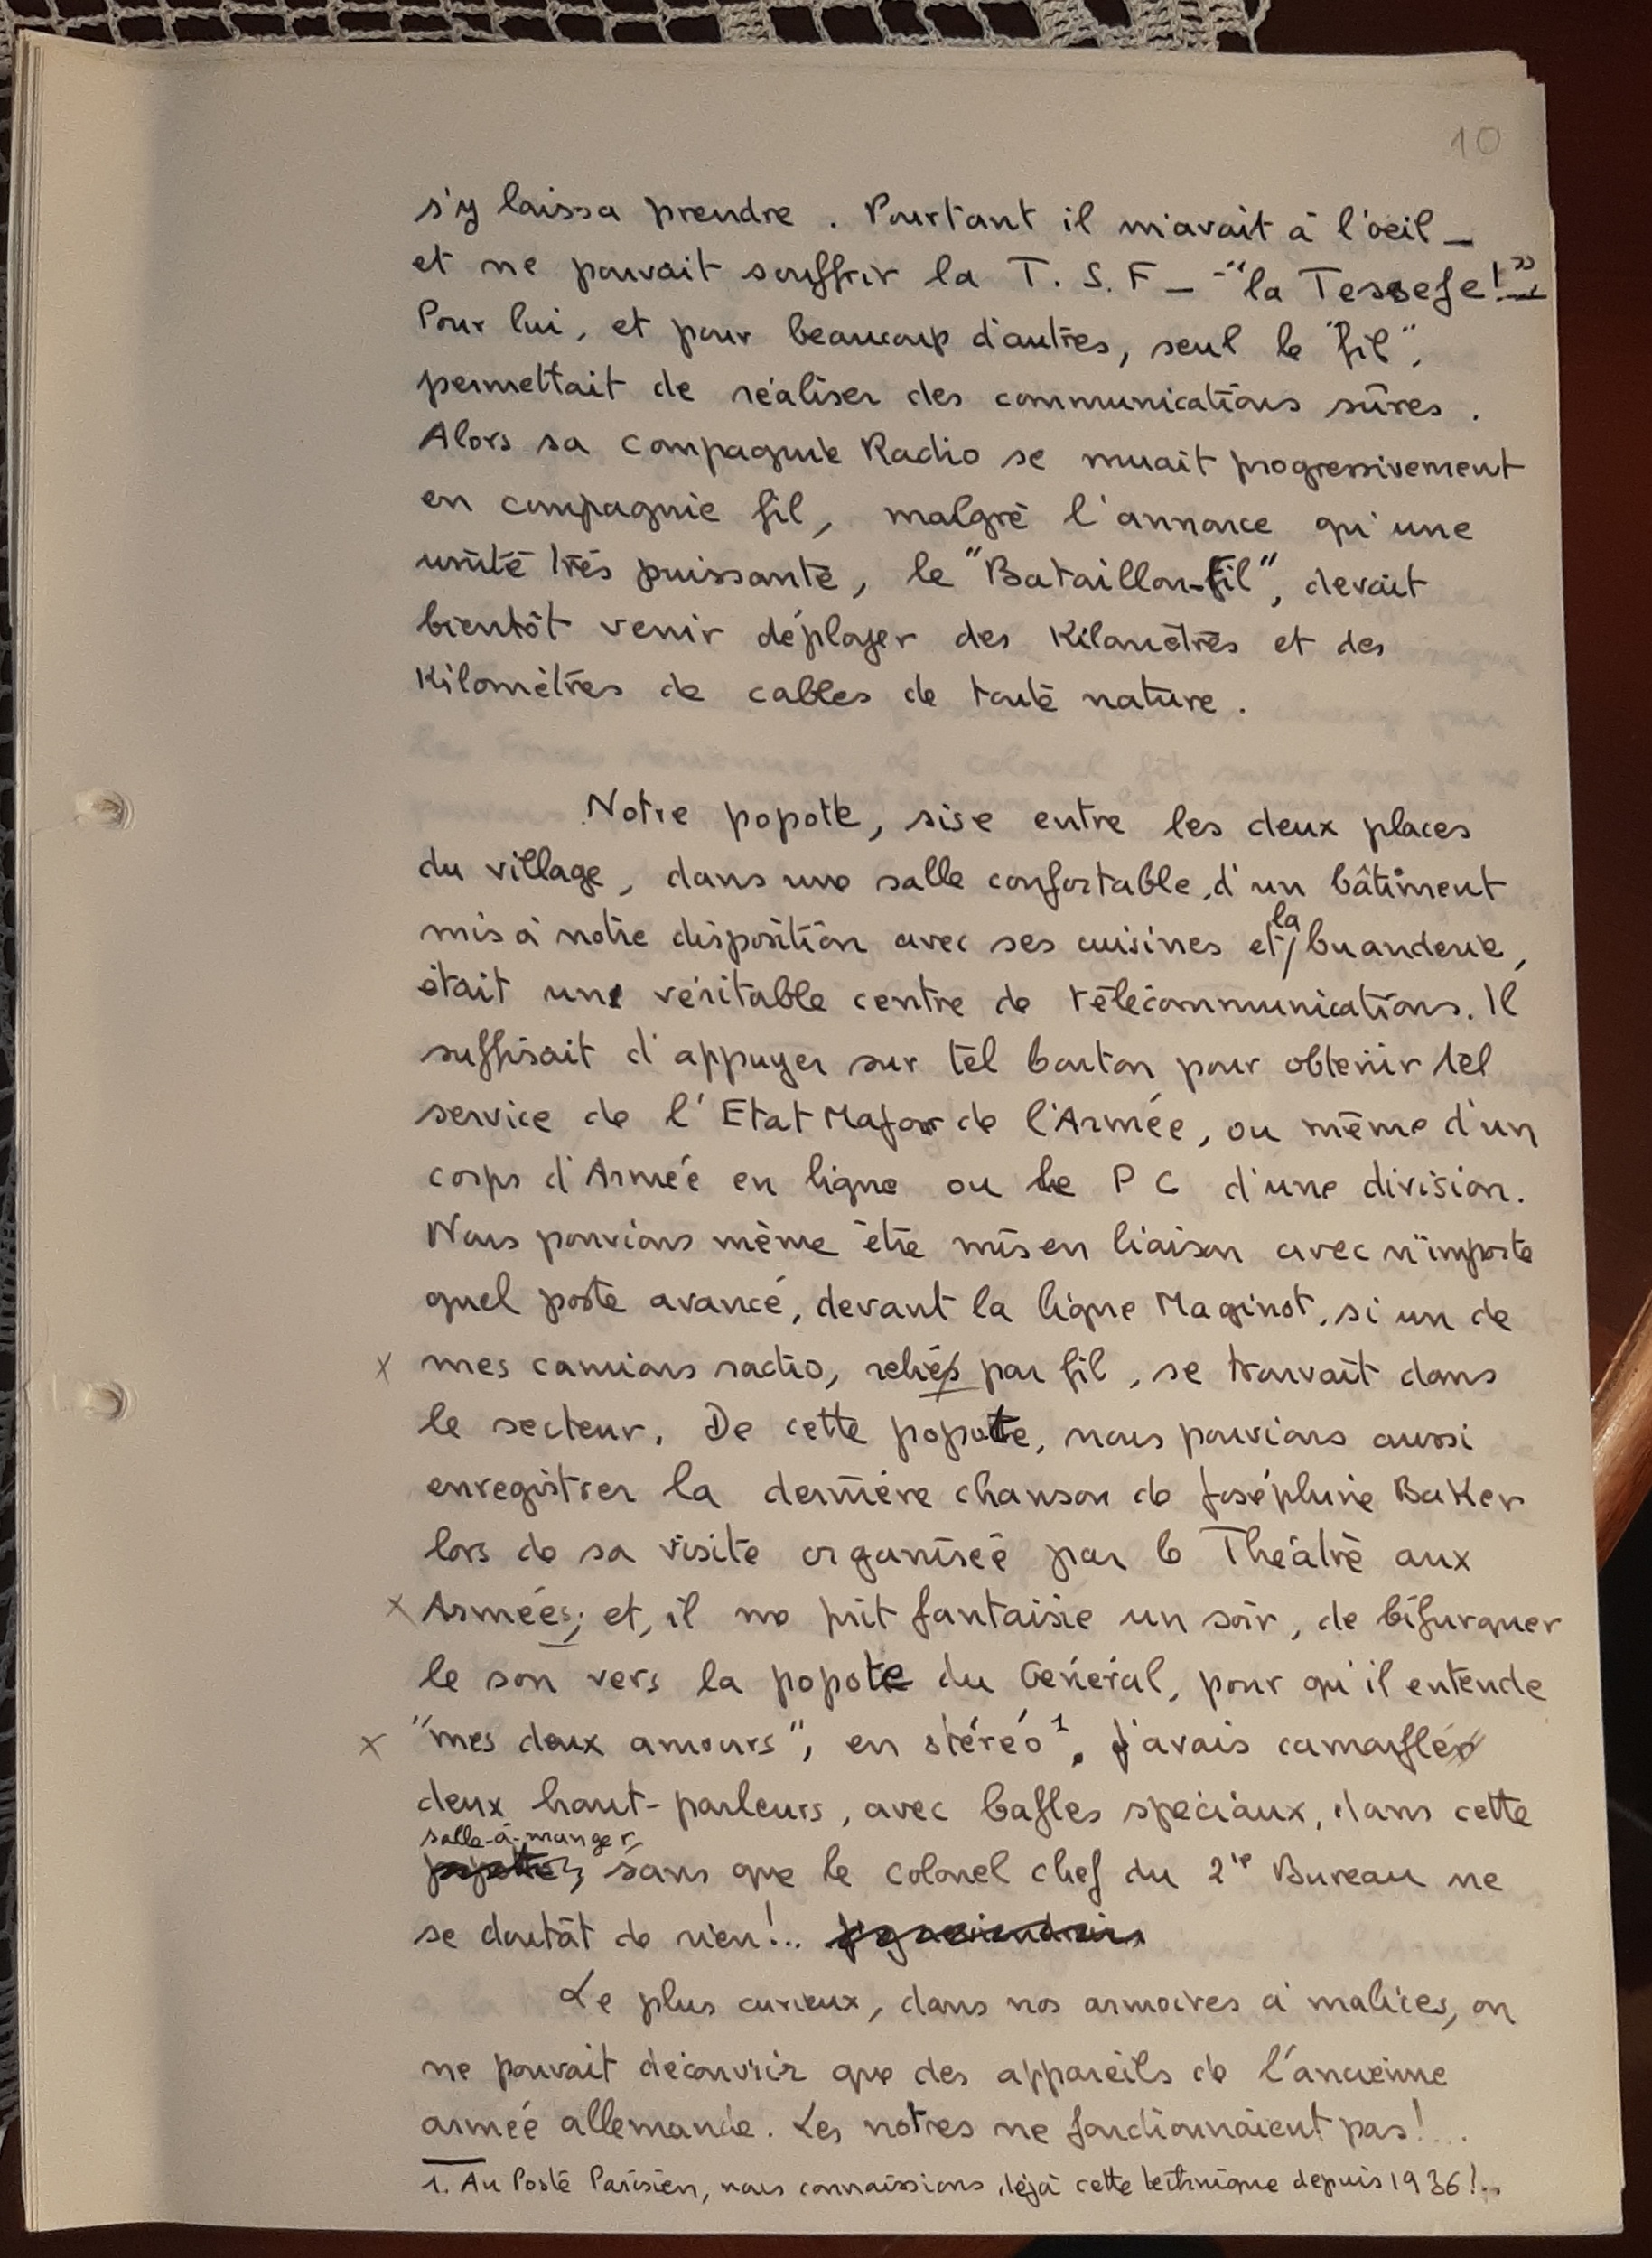 10
s'y laissa prendre. Pourtant il m'avait à l'oeil _
et ne pouvait souffrir la T.S.F _ "la Tessefe!"
Pour lui, et pour beaucoup d'autres, seul le "fil",
permettait de réaliser des communications sûres.
Alors sa Compagnie Radio se muait progressivement
en compagnie fil, malgré l'annonce qu'une
unité très puissante, le "Bataillon-fil", devait
bientôt venir déployer des Kilomètres et des
Kilomètres de cables de toute nature.
Notre popote, sise entre les deux places
du village, dans une salle confortable, d'un bâtiment
mis à notre disposition avec ses cuisines et la buanderie,
était une véritable centre de télécommunications. Il
suffisait d'appuyer sur tel bouton pour obtenir tel
service de l'Etat Major de l'Armée, ou même d'un
corps d'Armée en ligne ou le PC d'une division.
Nous pouvions même être mis en liaison avec n'importe
quel poste avancé, devant la ligne Maginot, si un de
x mes camions radio, relié par fil, se trouvait dans
le secteur. De cette popote, nous pouvions aussi
enregistrer la dernière chanson de Joséphine Baker
lors de sa visite organisée par le Théâtre aux
x Armées; et, il me prit fantaisie un soir, de bifurquer
le son vers la popote du Général, pour qu'il entende
x "mes deux amours", en stéréo¹. J'avais camouflé
deux haut-parleurs, avec bafles spéciaux, dans cette
salle-à-manger,
sans que le Colonel chef du 2ie Bureau ne
se doutât de rien!..
Le plus curieux, dans nos armoires à malices, on
ne pouvait découvrir que des appareils de l'ancienne
armée allemande. Les notres ne fonctionnaient pas!...
1. Au Poste Parisien, nous connaissions déjà cette technique depuis 1936!..